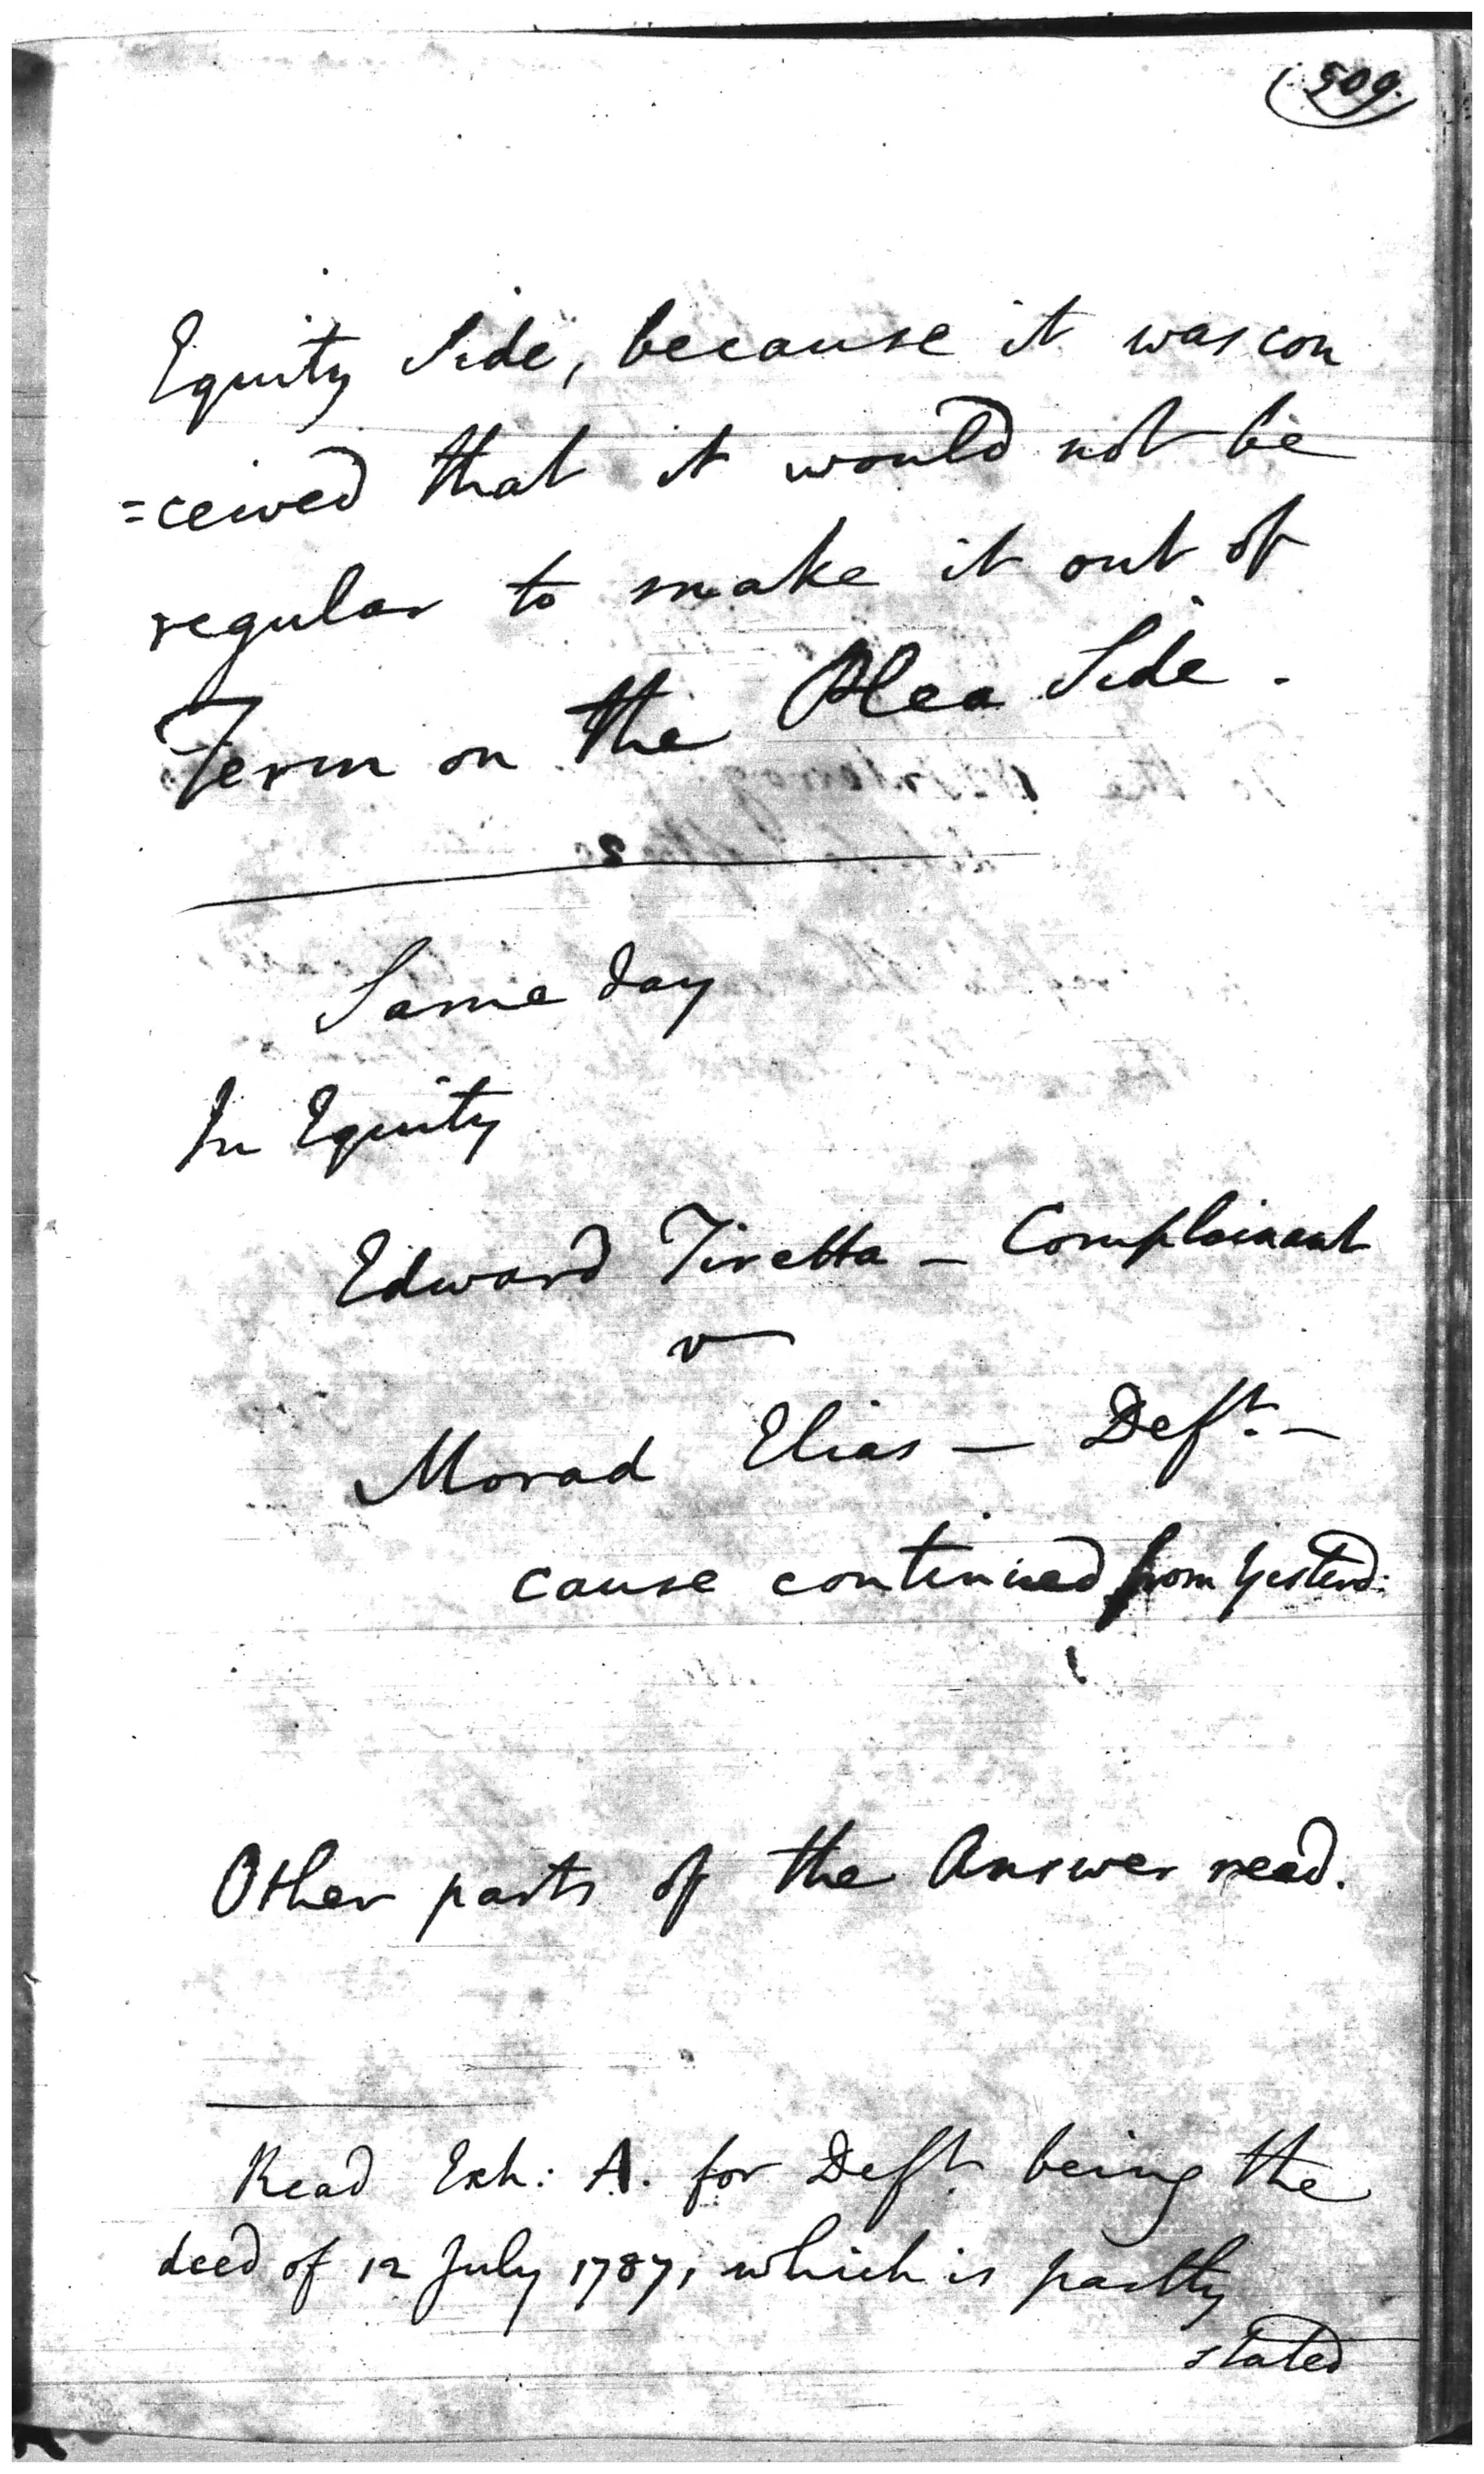 509.
Equity Side, because it was con
=ceived that it would not be
regular to make it out of
Term on the Plea Side.
Same day
In Equity
Edward Tiretta - Complainant
v
Morad Elias - Deft. -
cause continued from yesterd:
Other parts of the Answer read.
Read Exh: A. for Deft. being the
deed of 12 July 1787, which is partly
stated